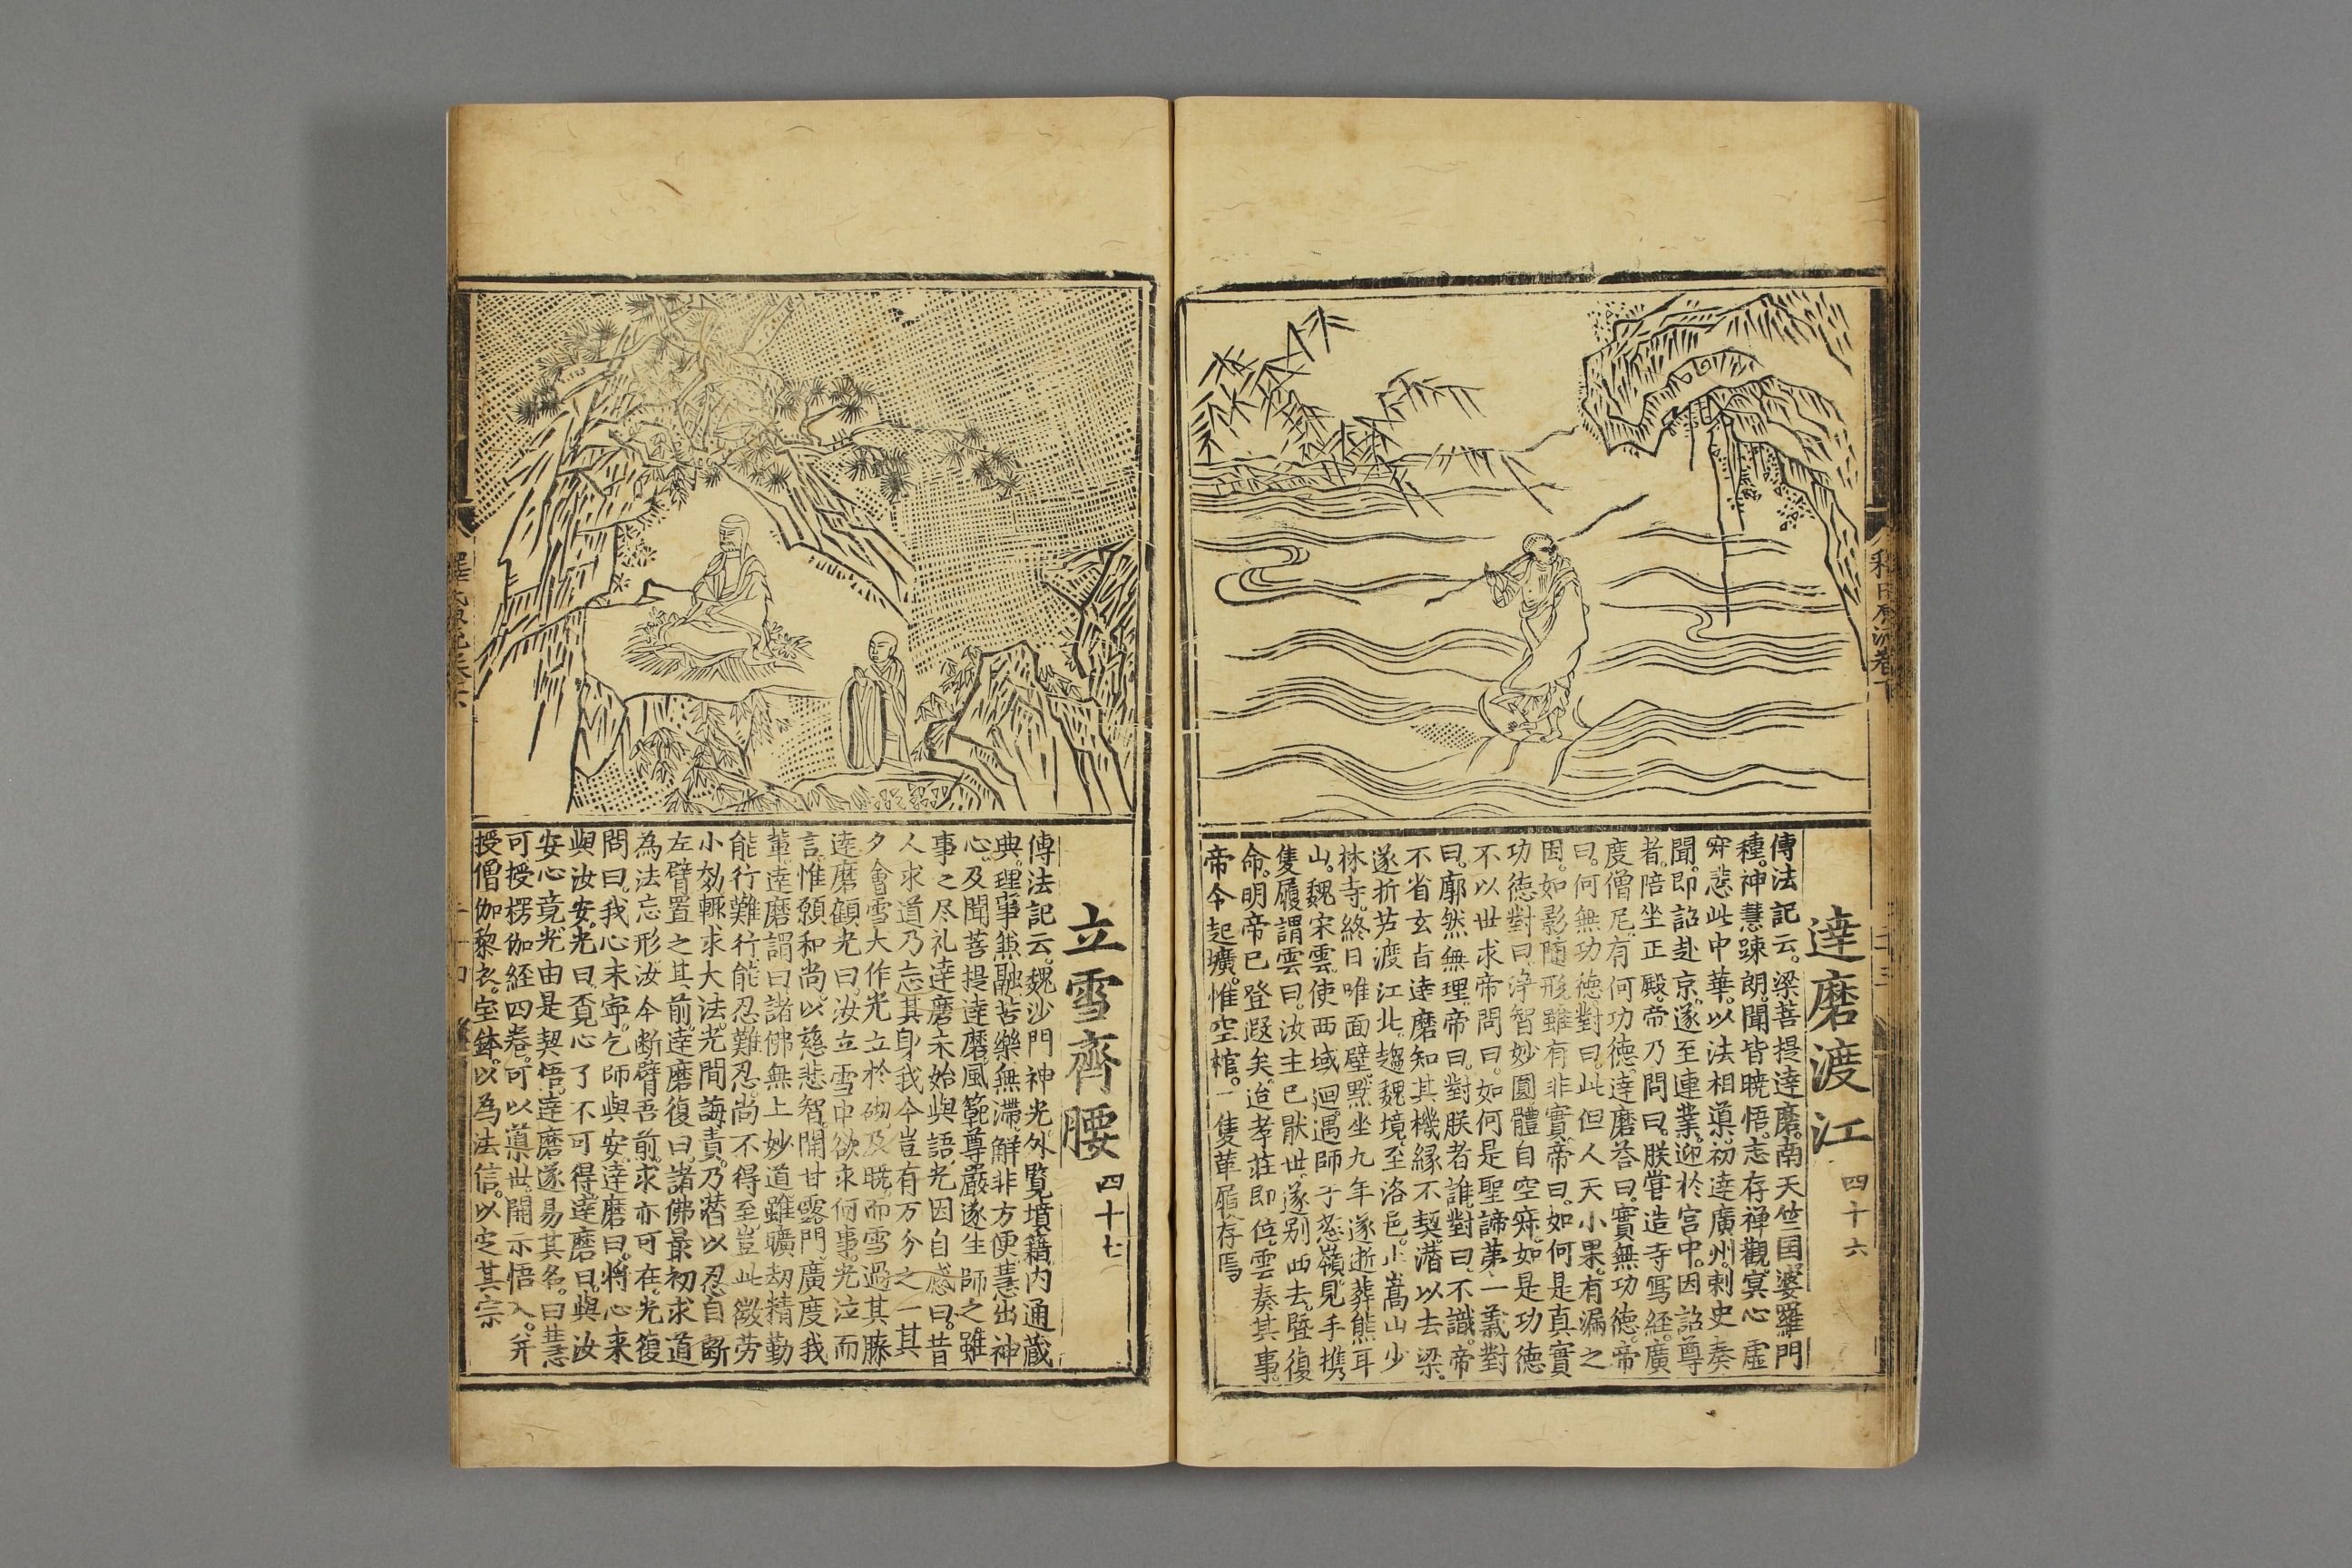 達磨渡江 四十六
傳法記云。梁菩提逹磨。南天竺国婆羅門
種。神慧踈朗。聞皆暁悟。志存禅觀。冥心虛
寂。悲此中華。以法相導。初逹廣州。刺史奏
聞。即詔赴京。遂至連業。迎於宫中。因詔尊
者。陪坐正殿。帝乃問曰。朕甞造寺冩經。廣
度僧尼。有何功徳。逹磨荅曰。實無功徳。帝
曰。何無功徳。對曰。此但人天小果。有漏之
因。如影隨形。雖有非實。帝曰。如何是真實
功徳。對曰。浄智妙圓。體自空寂。如是功徳
不以世求。帝問曰。如何是聖諦第一義。對
曰。廓然無理。帝曰。對朕者誰。對曰。不識。帝
不省玄旨。逹磨知其機縁不契。潜以去梁。
遂折芦渡江北。趨魏境。至洛邑。止嵩山少
林寺。終日唯面壁。黙坐九年。遂逝。葬熊耳
山。魏宋雲。使西域迴。遇師于葱嶺。見手携
隻履。謂雲曰。汝主已猒世。遂别西去。曁復
命。明帝已登遐矣。迨孝荘即位。雲奏其事。
帝令起壙。惟空棺。一隻革履存焉
立雪齊腰 四十七
傳法記云。魏沙門神光。外覧墳籍。内通蔵
典。理事兼融。苦樂無滯。解非方便。慧出神
心。及聞菩提逹磨。風範尊嚴。遂生師之。雖
事之尽礼。逹磨未始與語。光因自感曰。昔
人求道。乃忘其身。我今豈有万分之一。其
夕會雪大作。光立於砌。及暁。而雪過其膝
逹磨顧光曰。汝立雪中。欲求何事。光泣而
言。惟願和尚。以慈悲智。開甘露門。廣度我
輩。逹磨謂曰。諸佛無上妙道。雖曠劫精勤
能行難行。能忍難忍。尚不得至。豈此微劳
小効。輒求大法。光聞誨責。乃潜以刃自断
左臂。置之其前。逹磨復曰。諸佛最初求道
為法忘形。汝今断臂吾前。求亦可在。光復
問曰。我心未寧。乞師與安。逹磨曰。將心来
與汝安。光曰。覓心了不可得。逹磨曰。與汝
安心竟。光由是契悟。逹磨遂易其名。曰慧
可。授楞伽経四卷。可以導世。開示悟入。并
授僧伽黎衣。宝鉢。以為法信。以定其宗